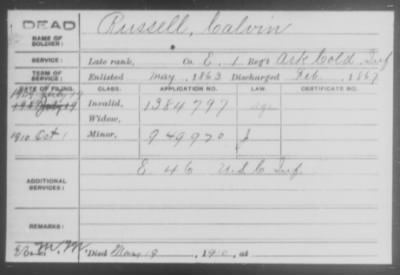 DEAD Russell, Calvin
NAME OF SOLDIER:
SERVICE: Late rank, Co. E, 1 Reg't Ark Cold. Inf
TERM OF SERVICE: Enlisted May, 1863 Discharged Feb., 1867
DATE OF FILING. CLASS. APPLICATION NO. LAW. CERTIFICATE NO.
July 19
July 19 Invalid, 1384797 age
Widow,
1910 Oct 1 Minor, 949920 J
E 46 U.S.C Inf.
ADDITIONAL SERVICES:
REMARKS:
M.M. Died May 19, 1910, at